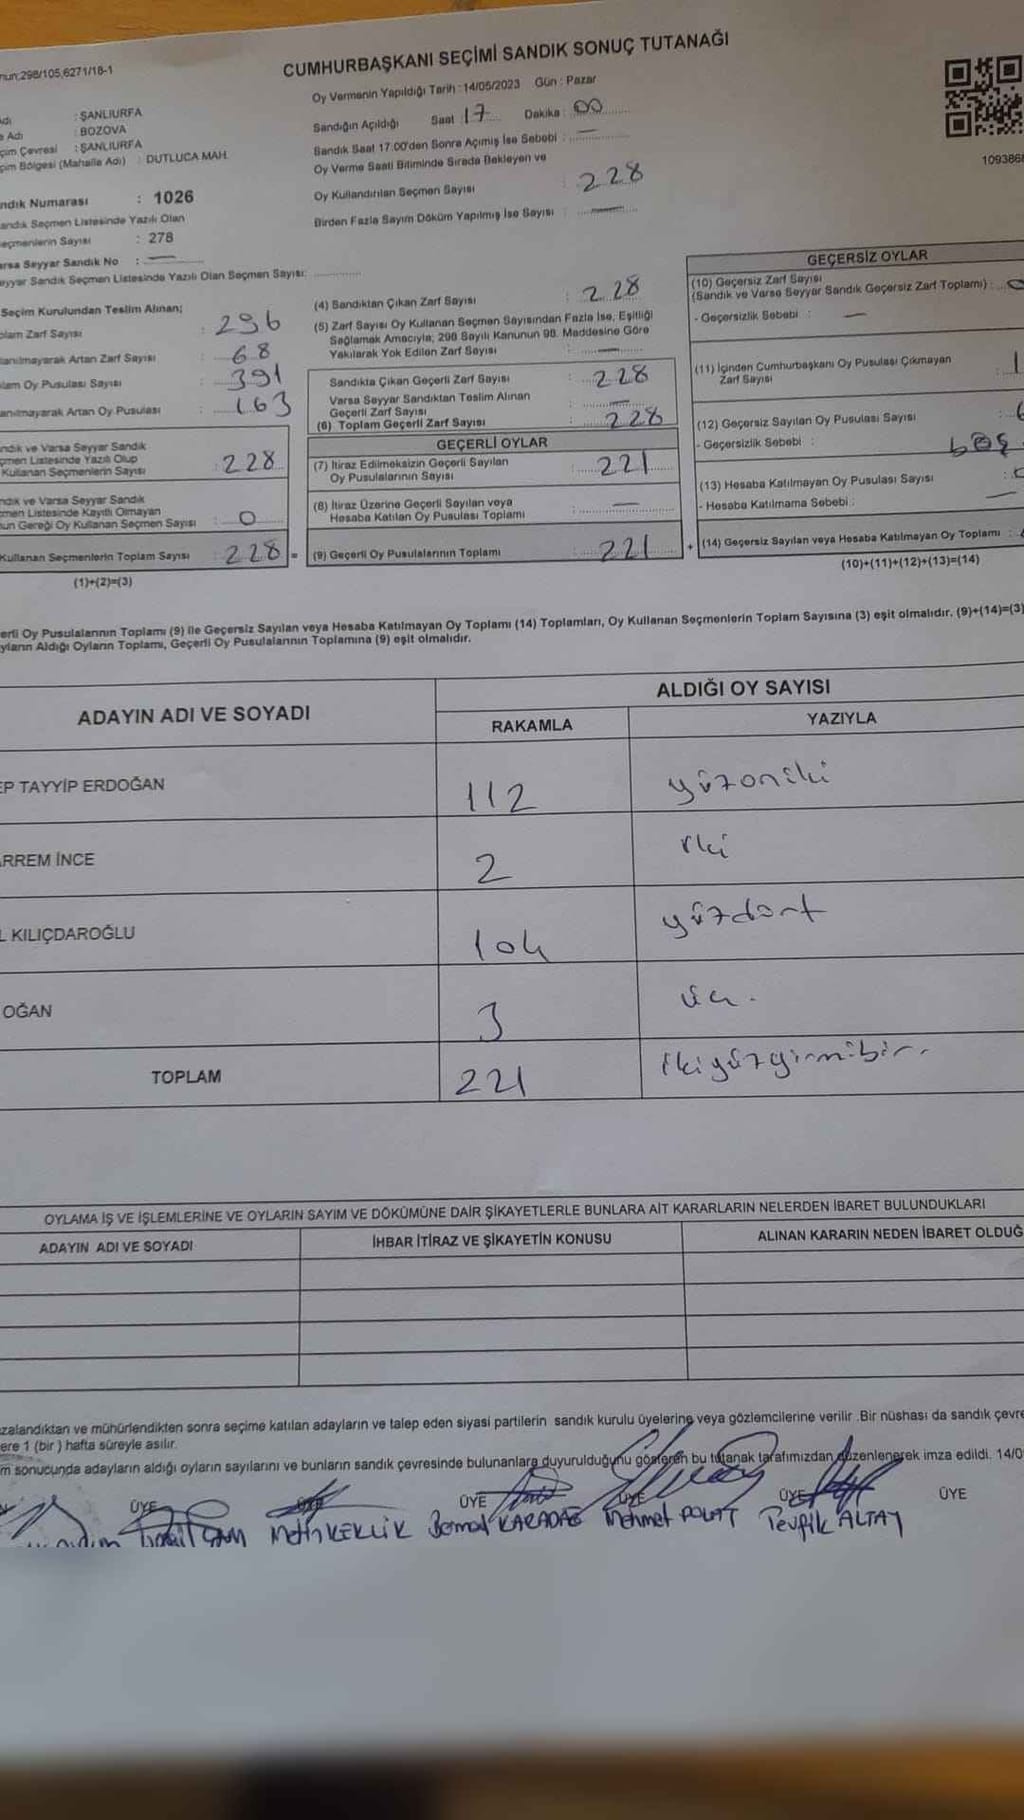 CUMHURBAŞKANI SEÇİMİ SANDIK SONUÇ TUTANAĞI
298/105,6271/18-1
Oy Vermenin Yapıldığı Tarih : 14/05/2023 Gün : Pazar
: ŞANLIURFA
Adı : BOZOVA
Çevresi : ŞANLIURFA
Bölgesi (Mahalle Adı) : DUTLUCA MAH.
Sandığın Açıldığı Saat : 17 Dakika : 00
Sandık Saat 17.00'den Sonra Açımış İse Sebebi : —
Oy Verme Saati Bitiminde Sırada Bekleyen ve
Oy Kullandırılan Seçmen Sayısı : 228
Birden Fazla Sayım Döküm Yapılmış İse Sayısı : —
109386
Numarası : 1026
Seçmen Listesinde Yazılı Olan
Sayısı : 278
Seyyar Sandık No : —
Sandık Seçmen Listesinde Yazılı Olan Seçmen Sayısı:
Seçim Kurulundan Teslim Alınan;
Zarf Sayısı : 296
Artan Zarf Sayısı : 68
Oy Pusulası Sayısı : 391
Artan Oy Pusulası : 163
ve Varsa Seyyar Sandık
Listesinde Yazılı Olup
Kullanan Seçmenlerin Sayısı : 228
ve Varsa Seyyar Sandık
Listesinde Kayıtlı Olmayan
Gereği Oy Kullanan Seçmen Sayısı : 0
Kullanan Seçmenlerin Toplam Sayısı : 228 =
(1)+(2)=(3)
(4) Sandıktan Çıkan Zarf Sayısı : 228
(5) Zarf Sayısı Oy Kullanan Seçmen Sayısından Fazla İse, Eşitliği
Sağlamak Amacıyla; 298 Sayılı Kanunun 98. Maddesine Göre
Yakılarak Yok Edilen Zarf Sayısı : —
Sandıkta Çıkan Geçerli Zarf Sayısı : 228
Varsa Seyyar Sandıktan Teslim Alınan
Geçerli Zarf Sayısı : —
(6) Toplam Geçerli Zarf Sayısı : 228
GEÇERLİ OYLAR
(7) İtiraz Edilmeksizin Geçerli Sayılan
Oy Pusulalarının Sayısı : 221
(8) İtiraz Üzerine Geçerli Sayılan veya
Hesaba Katılan Oy Pusulası Toplamı : —
(9) Geçerli Oy Pusulalarının Toplamı : 221 +
GEÇERSİZ OYLAR
(10) Geçersiz Zarf Sayısı
(Sandık ve Varsa Seyyar Sandık Geçersiz Zarf Toplamı) : 0
- Geçersizlik Sebebi : —
(11) İçinden Cumhurbaşkanı Oy Pusulası Çıkmayan
Zarf Sayısı : 1
(12) Geçersiz Sayılan Oy Pusulası Sayısı :
- Geçersizlik Sebebi : boş
(13) Hesaba Katılmayan Oy Pusulası Sayısı :
- Hesaba Katılmama Sebebi : —
(14) Geçersiz Sayılan veya Hesaba Katılmayan Oy Toplamı :
(10)+(11)+(12)+(13)=(14)
Oy Pusulalarının Toplamı (9) ile Geçersiz Sayılan veya Hesaba Katılmayan Oy Toplamı (14) Toplamları, Oy Kullanan Seçmenlerin Toplam Sayısına (3) eşit olmalıdır. (9)+(14)=(3)
Aldığı Oyların Toplamı, Geçerli Oy Pusulalarının Toplamına (9) eşit olmalıdır.
ADAYIN ADI VE SOYADI
ALDIĞI OY SAYISI
RAKAMLA YAZIYLA
EP TAYYİP ERDOĞAN 112 yüzoniki
ARREM İNCE 2 iki
L KILIÇDAROĞLU 104 yüzdört
OĞAN 3 üç.
TOPLAM 221 ikiyüzyirmibir.
OYLAMA İŞ VE İŞLEMLERİNE VE OYLARIN SAYIM VE DÖKÜMÜNE DAİR ŞİKAYETLERLE BUNLARA AİT KARARLARIN NELERDEN İBARET BULUNDUKLARI
ADAYIN ADI VE SOYADI İHBAR İTİRAZ VE ŞİKAYETİN KONUSU ALINAN KARARIN NEDEN İBARET OLDUĞ
zalandıktan ve mühürlendikten sonra seçime katılan adayların ve talep eden siyasi partilerin sandık kurulu üyelerine veya gözlemcilerine verilir .Bir nüshası da sandık çevre
ere 1 (bir ) hafta süreyle asılır.
m sonucunda adayların aldığı oyların sayılarını ve bunların sandık çevresinde bulunanlara duyurulduğunu gösteren bu tutanak tarafımızdan düzenlenerek imza edildi. 14/0
ÜYE ÜYE ÜYE ÜYE ÜYE ÜYE
Metin KEKLİK KARADAŞ Mehmet POLAT Tevfik ALTAY